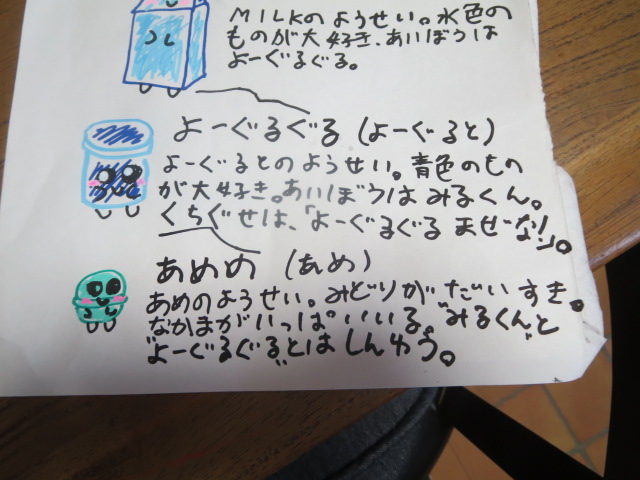 MILKのようせい。水色の
ものが大好き、あいぼうは
よーぐるぐる。
よーぐるぐる (よーぐると)
よーぐるとのようせい。青色のもの
が大好き。あいぼうはみるくん。
くちぐせは、「よーぐるぐる まぜなり」。
あめめ (あめ)
あめのようせい。みどりがだいすき。
なかまがいっぱいいる。"みるくん"と
"よーぐるぐる"とはしんゆう。